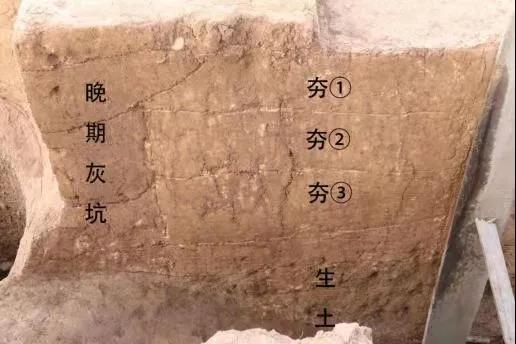 晚期灰坑
夯①
夯②
夯③
生土